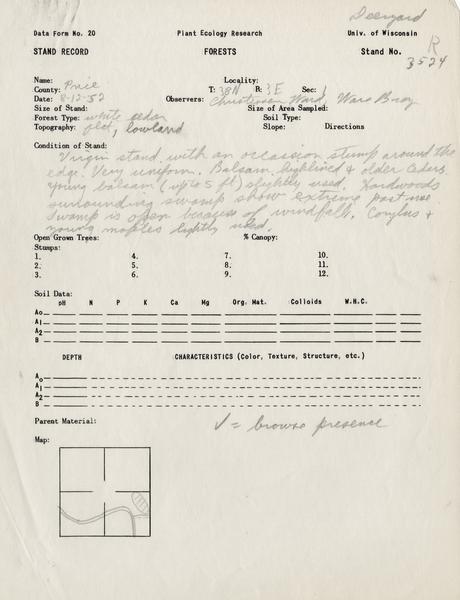 Deeryard
Data Form No. 20 Plant Ecology Research Univ. of Wisconsin
STAND RECORD FORESTS Stand No. R
3524
Name: Locality:
County: Price T: 38N R: 3E Sec: 1
Date: 8-12-52 Observers: Christensen Ward,
Size of Stand: Size of Area Sampled:
Forest Type: white cedar Soil Type:
Topography: flat, lowland Slope: Directions
Condition of Stand:
Virgin stand with an occasion stump around the
edge. Very uniform. Balsam highlined & older cedars.
Young balsam (up to 5 ft) slightly used. Hardwoods
surrounding swamp show extreme past use
Swamp is open because of windfall. Corylus &
young maples lightly used.
Open Grown Trees: % Canopy:
Stumps:
1. 4. 7. 10.
2. 5. 8. 11.
3. 6. 9. 12.
Soil Data:
pH N P K Ca Mg Org. Mat. Colloids W.H.C.
A₀
A₁
A₂
B
DEPTH CHARACTERISTICS (Color, Texture, Structure, etc.)
A₀
A₁
A₂
B
Parent Material: ✓ = browse presence
Map: